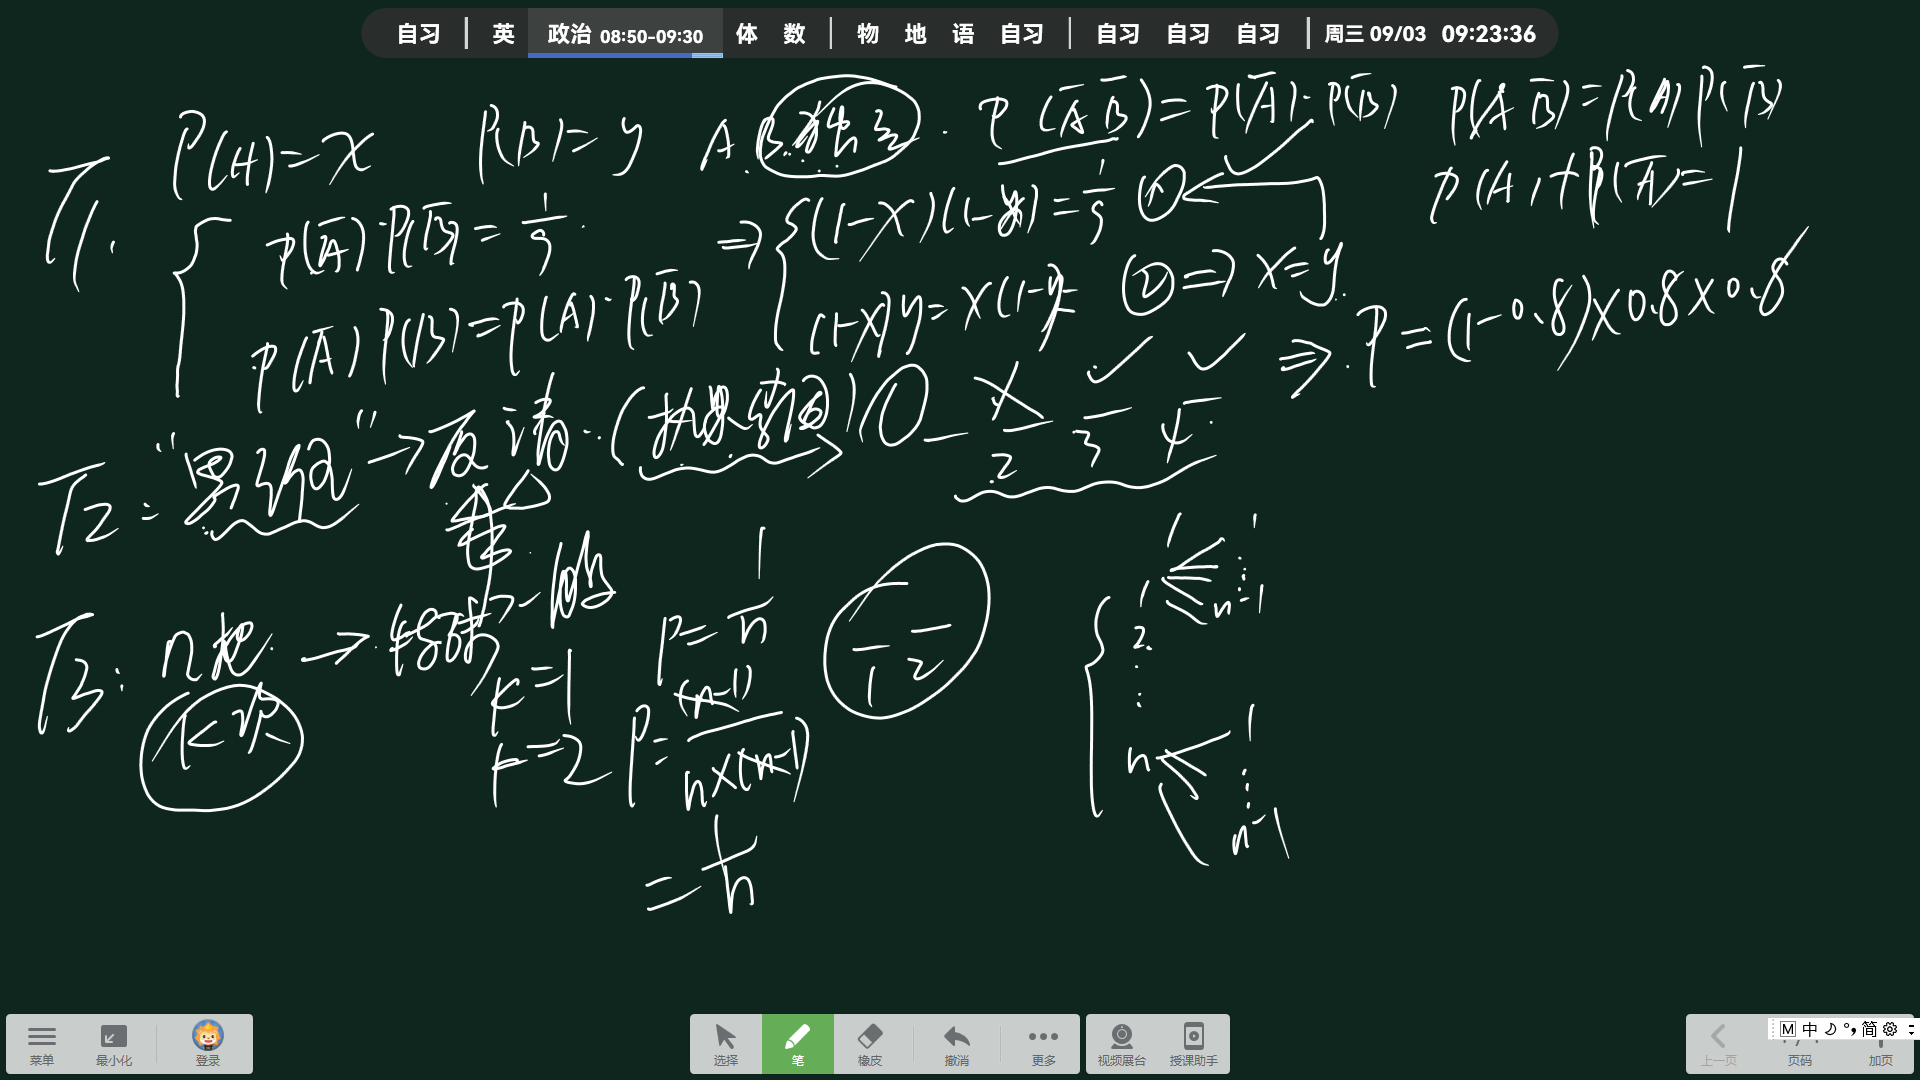 自习 | 英 政治 08:50-09:30 体 数 | 物 地 语 自习 | 自习 自习 自习 | 周三 09/03 09:23:36
T1. P(A)=x P(B)=y A.B.独立. P(A̅B̅)=P(A̅)·P(B̅) P(AB̅)=P(A)P(B̅)
P(A)+P(A̅)=1
P(A̅)·P(B̅)=1/9. ⇒ (1-x)(1-y)=1/9 ①
P(A̅)P(B)=P(A)·P(B̅) (1-x)y=x(1-y) ②⇒x=y.
⇒. P=(1-0.8)×0.8×0.8
T2: "
" →
1 2 3 4
× ✓ ✓
T3: n把. → 特殊→一般
K次
K=1 P=1/n
K=2 P=(n-1)/n×(n-1)
=1/n
1 2
1 1 ⋮ n-1
2.
⋮
n 1 ⋮ n-1
菜单 最小化 登录 选择 笔 橡皮 撤消 更多 视频展台 授课助手 上一页 页码 加页
M 中 简